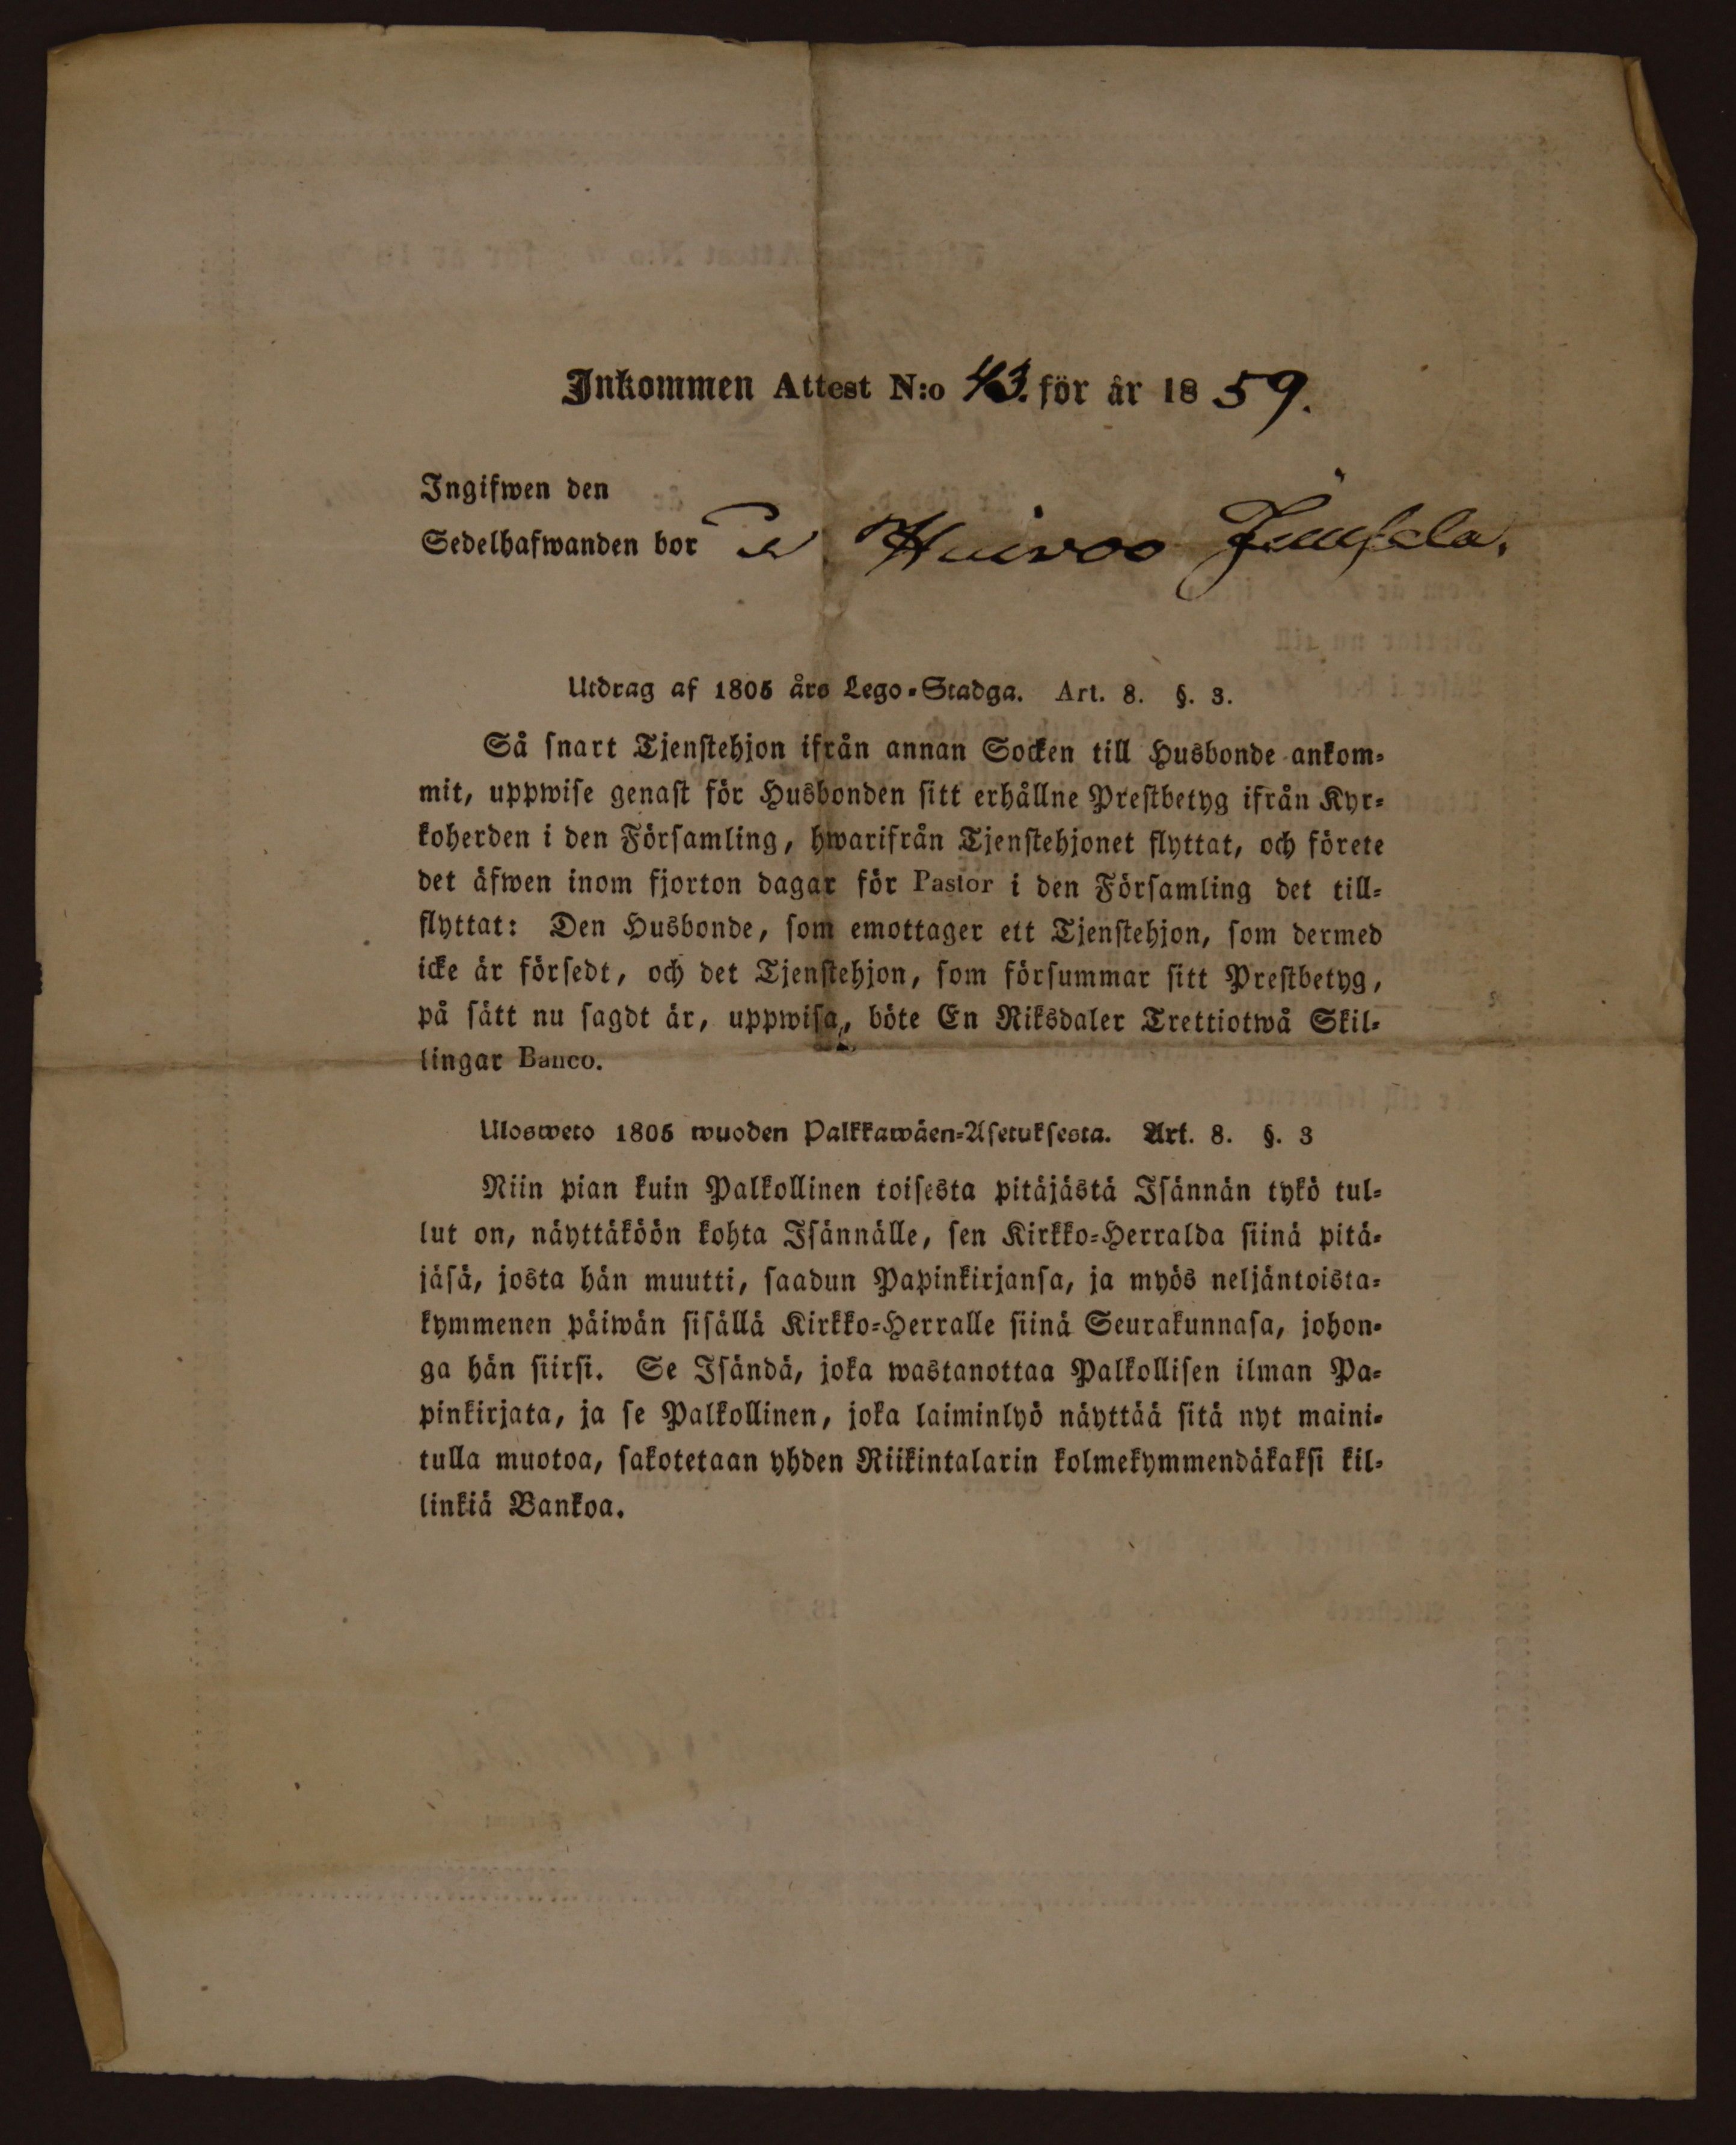 Inkommen Attest N:o 43. för år 1859.
Ingifwen den
Sedelhafwanden bor
Utdrag af 1805 års Lego-Stadga. Art. 8. §. 3.
Så snart Tjenstehjon ifrån annan Socken till Husbonde ankom-
mit, uppwise genast för Husbonden sitt erhållne Prestbetyg ifrån Kyr-
koherden i den Församling, hwarifrån Tjenstehjonet flyttat, och förete
det äfwen inom fjorton dagar för Pastor i den Församling det till-
flyttat: Den Husbonde, som emottager ett Tjenstehjon, som dermed
icke är försedt, och det Tjenstehjon, som försummar sitt Prestbetyg,
på sätt nu sagdt är, uppwisa, böte En Riksdaler Trettiotwå Skil-
lingar Banco.
Ulosweto 1805 wuoden Palkkawäen-Asetuksesta. Art. 8. §. 3
Niin pian kuin Palkollinen toisesta pitäjästä Isännän tykö tul-
lut on, näyttäköön kohta Isännälle, sen Kirkko-Herralda siinä pitä-
jäsä, josta hän muutti, saadun Papinkirjansa, ja myös neljäntoista-
kymmenen päiwän sisällä Kirkko-Herralle siinä Seurakunnasa, johon-
ga hän siirsi. Se Isändä, joka wastanottaa Palkollisen ilman Pa-
pinkirjata, ja se Palkollinen, joka laiminlyö näyttää sitä nyt maini-
tulla muotoa, sakotetaan yhden Riikintalarin kolmekymmendäkaksi kil-
linkiä Bankoa.